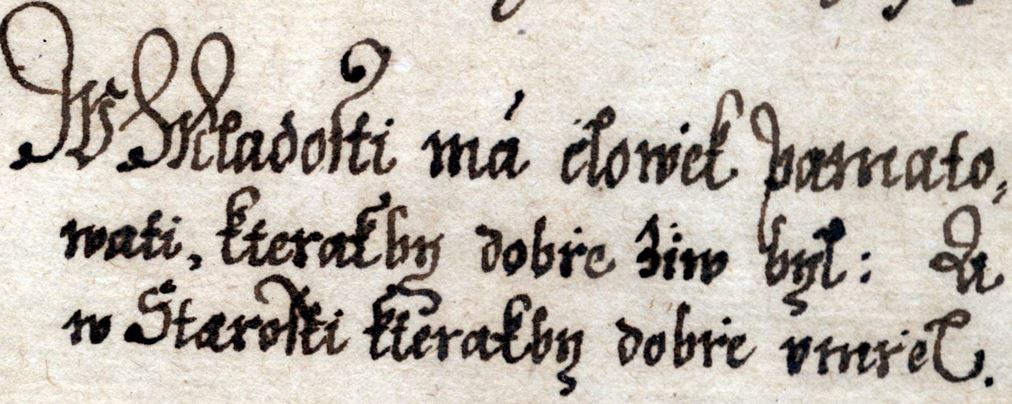 W Mladosti má člowěk pamato,
wati, kterakby dobře žiw byl: A
w Starosti kterakby dobře vmřel.